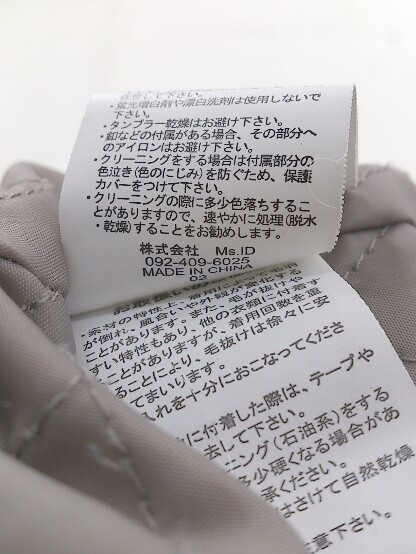 ・蛍光増白剤や漂白洗剤は使用しないで
下さい。
・タンブラー乾燥はお避け下さい。
・釦などの付属がある場合、その部分へ
のアイロンはお避け下さい。
・クリーニングをする場合は付属部分の
色泣き(色のにじみ)を防ぐため、保護
カバーをつけて下さい。
・クリーニングの際に多少色落ちするこ
とがありますので、速やかに処理(脱水
・乾燥)することをお勧めします。
株式会社 Ms.ID
092-409-6025
MADE IN CHINA
02
・素材の特性上、着用
が倒れ、風合いや外観が変化する
ことがあります。また、毛が抜けや
すい特性もあり、他の衣類に付着す
ことがありますが、着用回数を重
ることにより、毛抜けは徐々に安
てまいります。
入れを十分におこなってくださ
に付着した際は、テープや
去して下さい。
ニング(石油系)をする
多少硬くなる場合があ
承ください。
はさけて自然乾燥
意下さい。